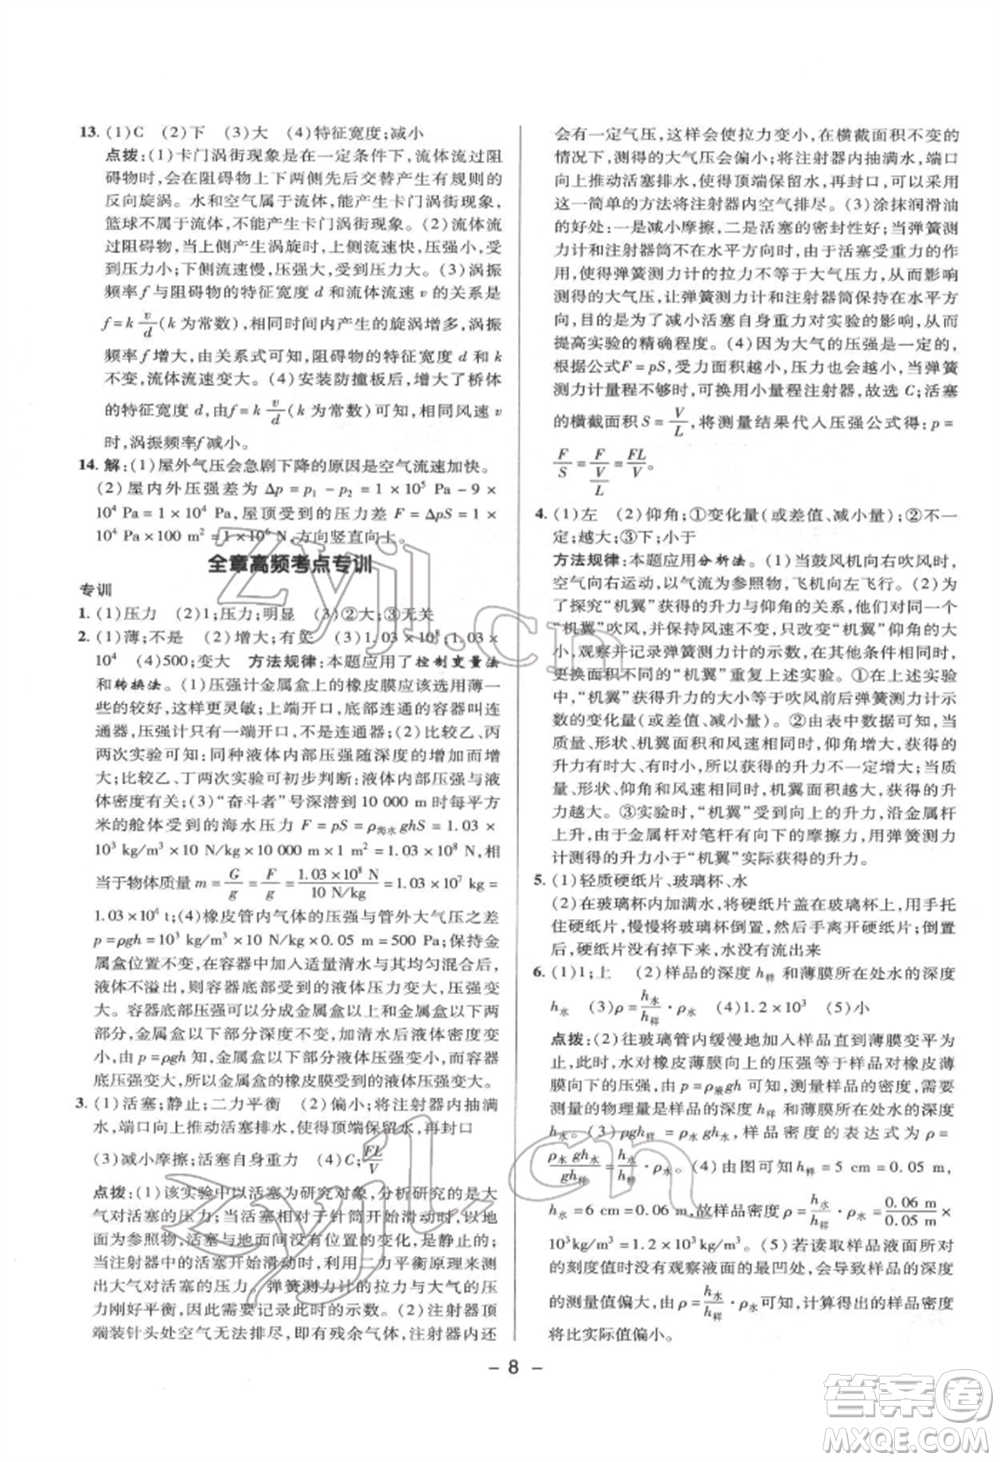 13. (1)C (2)下 (3)大 (4)特征宽度;减小
点拨:(1)卡门涡街现象是在一定条件下,流体流过阻
碍物时,会在阻碍物上下两侧先后交替产生有规则的
反向旋涡。水和空气属于流体,能产生卡门涡街现象,
篮球不属于流体,不能产生卡门涡街现象。(2)流体流
过阻碍物,当上侧产生涡旋时,上侧流体流速快,压强小,
压力小;下侧流速慢,压强大,受到压力大。(3)涡振
频率 f 与阻碍物的特征宽度 d 和流体流速 v 的关系是
f=k v/d (k 为常数),相同时间内产生的旋涡增多,涡振
频率 f 增大,由关系式可知,阻碍物的特征宽度 d
不变,流体流速变大。(4)安装防撞板后,增大了桥体
的特征宽度 d,由f=k v/d (k 为常数)可知,相同风速 v
时,涡振频率f减小。
14. 解:(1)屋外气压会急剧下降的原因是空气流速加快。
(2)屋内外压强差为 Δp=p₁-p₂=1×10⁵ Pa-9×
10⁴ Pa=1×10⁴ Pa,屋顶受到的压力差 F=ΔpS=1×
10⁴ Pa×100 m²=1×10⁶ N,方向竖直向上。
全章高频考点专训
专训
1. (1)压力 (2)1;压力;明显 (3)②大;③无关
2. (1)薄;不是 (2)增大;有关 (3)1.03×10⁸;1.03×
10⁴ (4)500;变大 方法规律:本题应用了控制变量法
和转换法。(1)压强计金属盒上的橡皮膜应该选用薄一
些的较好,这样更灵敏;上端开口,底部连通的容器叫连
通器,压强计一端开口,不属于连通器。(2)比较乙、丙
两次实验可知:同种液体内部压强随深度的增加而增
大;比较乙、丁两次实验可初步判断:液体内部压强与
液体密度有关;(3)“奋斗者”号深潜到 10 000 m时每平方
米的舱体受到的海水压力 F=pS=ρ海水ghS=1.03×
10³ kg/m³×10 N/kg×10⁴ m×1 m²=1.03×10⁸ N,相
当于物体质量 m=G/g=F/g=1.03×10⁸ N/10 N/kg=1.03×10⁷ kg=
1.03×10⁴ t;(4)橡皮管内气体的压强与大气压之差
p=ρgh=10³ kg/m³×10 N/kg×0.05 m=500 Pa;保持
金属盒位置不变,在容器中加入适量清水与其均匀混合
(液体不溢出),液体的压力变大,压强变大,但液体密度
变小。容器底部压强可分为金属盒以上和以下两
部分,金属盒以下部分深度不变,但液体密度减小,
由 p=ρgh 可知,金属盒以下部分液体压强变小,
所以金属盒以上部分压强变大,即橡皮膜受到的液体压
强增大,所以金属盒的橡皮膜受到的液体压强变大。
3. (1)活塞;静止;二力平衡 (2)偏小;将注射器内抽满
水,端口向上推动活塞排水,使端口保留水,再封口
(3)减小摩擦;活塞自身重力 (4)C;FL/V
点拨:(1)该实验中以活塞为研究对象,分析研究的是大
气对活塞的压力;当活塞相对于针筒开始滑动时,以地
面为参照物,活塞与地面间位置的变化是静止的;
由注射器内的活塞开始滑动时,利用二力平衡原理来测
出大气对活塞的压力,弹簧测力计的拉力与大气的压
力刚好平衡,故需要记录此时的示数。(2)注射器顶
端装针头处空气无法排尽,即有残余气体,注射器内还
会有气压,这样会使拉力变小,在横截面积不变的
情况下,测得的大气压会偏小;将注射器内抽满水,端口
向上推动活塞排水,使端口保留水,再封口,可以用这
一简单的方法将注射器内空气排尽。(3)涂抹润滑油
的好处:一是减小摩擦,二是活塞的密封性更好;当弹簧
测力计和注射器筒不在水平方向时,由于活塞受重力的作
用,会使弹簧测力计的拉力不等于大气压力,从而影响
测得的大气压,让弹簧测力计和注射器筒保持在水平方
向,目的是为了减小活塞自身重力对实验的影响,从而
提高实验的精确程度。(4)因为大气压强是一定的,
根据公式 F=pS,受力面积越小,压力也会越小,当弹簧
测力计量程不够时,可换用小量程注射器,故选 C;活塞
的横截面积 S=V/L,将测量结果代入压强公式得:p=
F/S=F/(V/L)=FL/V。
4. (1)左 (2)仰角;①变化量(或差值、减小量);②不一
定;③小于
方法规律:本题应用分析法。(1)当鼓风机向右吹风时,
空气向右运动,以气流为参照物,飞机向左飞行。(2)
为了探究“机翼”获得的升力与仰角的关系,实验时,对着
“机翼”吹风,并保持风速不变,多次改变“机翼”的仰角大
小,观察并记录弹簧测力计的示数,分析数据得出结论。
更换面积不同的“机翼”,重复上述实验。①在上述实验
中,“机翼”获得升力的大小等于吹风前后弹簧测力计示
数的变化量(或差值、减小量)。②由表中数据可知,
当形状、“机翼”面积和风速相同时,仰角大,获得的升
力不一定大,仰角和风速相同时,“机翼”面积越大,获得的升
力越大。③实验时,“机翼”受到向上的升力,沿金属杆
上升,由于金属杆对笔杆有向下的摩擦力,用弹簧测力
计测得的升力小于“机翼”实际获得的升力。
5. (1)轻质硬纸片、玻璃杯、水
(2)在玻璃杯内加满水,将硬纸片盖在玻璃杯口,用手托
住硬纸片,慢慢将玻璃杯倒置,然后手离开硬纸片;倒置
后,硬纸片没有掉下来,水没有流出来
6. (1)1;上 (2)样品的深度 h样 和薄膜所在处水的深度
h水 (3)ρ=h水/h样·ρ水 (4)1.2×10³ (5)小
点拨:(2)往玻璃管内缓慢地加入样品直到薄膜变平为
止,此时,水对橡皮薄膜向上的压强等于样品对橡皮薄
膜向下的压强,由 p=ρ液gh 可知,测量样品的密度,需要
测量的物理量是样品的深度 h样 和薄膜所在处水的深度
h水。(3) ρgh样=ρ水gh水,样品密度的表达式为 ρ=
ρ水gh水/gh样=h水/h样·ρ水。(4)由图可知,h样=5 cm=0.05 m,
h水=6 cm=0.06 m,故样品密度 ρ=h水/h样·ρ水=0.06 m/0.05 m×
10³kg/m³=1.2×10³ kg/m³。(5)若读取样品液面所对
的刻度值时没有观察液面的最凹处,会导致样品深度
的测量值偏大,由 ρ=h水/h样·ρ水 可知,计算得出的样品密度
将比实际值偏小。
- 8 -
zyjl.cn
zyjl.cn
答案圈
MXQE.COM